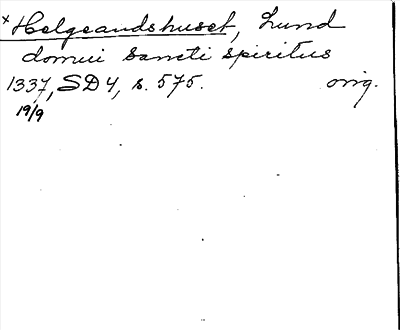 x Helgeandshuset, Lund
domui sancti spiritus
1337, SD 4, s. 575. orig.
19/9